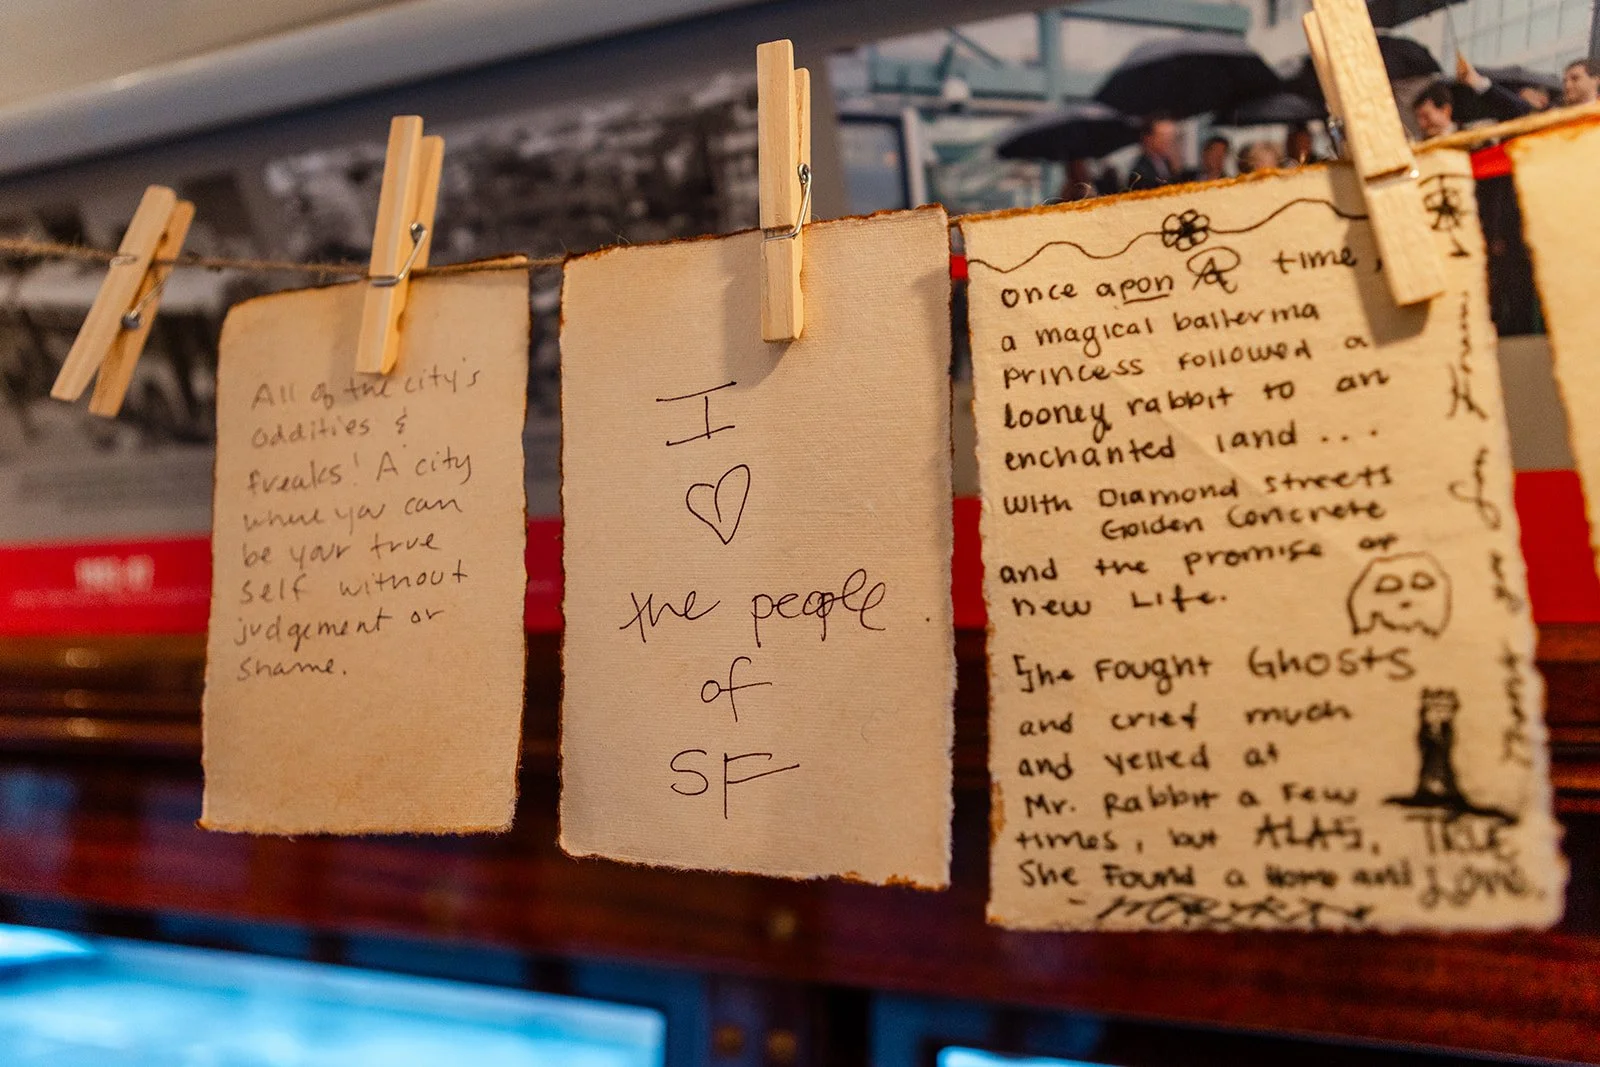 All of the city's
oddities &
freaks! A city
where you can
be your true
self without
judgement or
shame.
I
the people
of
SF
once apon A time,
a magical ballerina
princess followed a
looney rabbit to an
enchanted land ...
with Diamond streets
Golden Concrete
and the promise of
new Life.
She Fought GHOSTS
and cried much
and yelled at
Mr. Rabbit a Few
times, but ALAS,
She Found a Home and TRUE
Love.
Thank you for